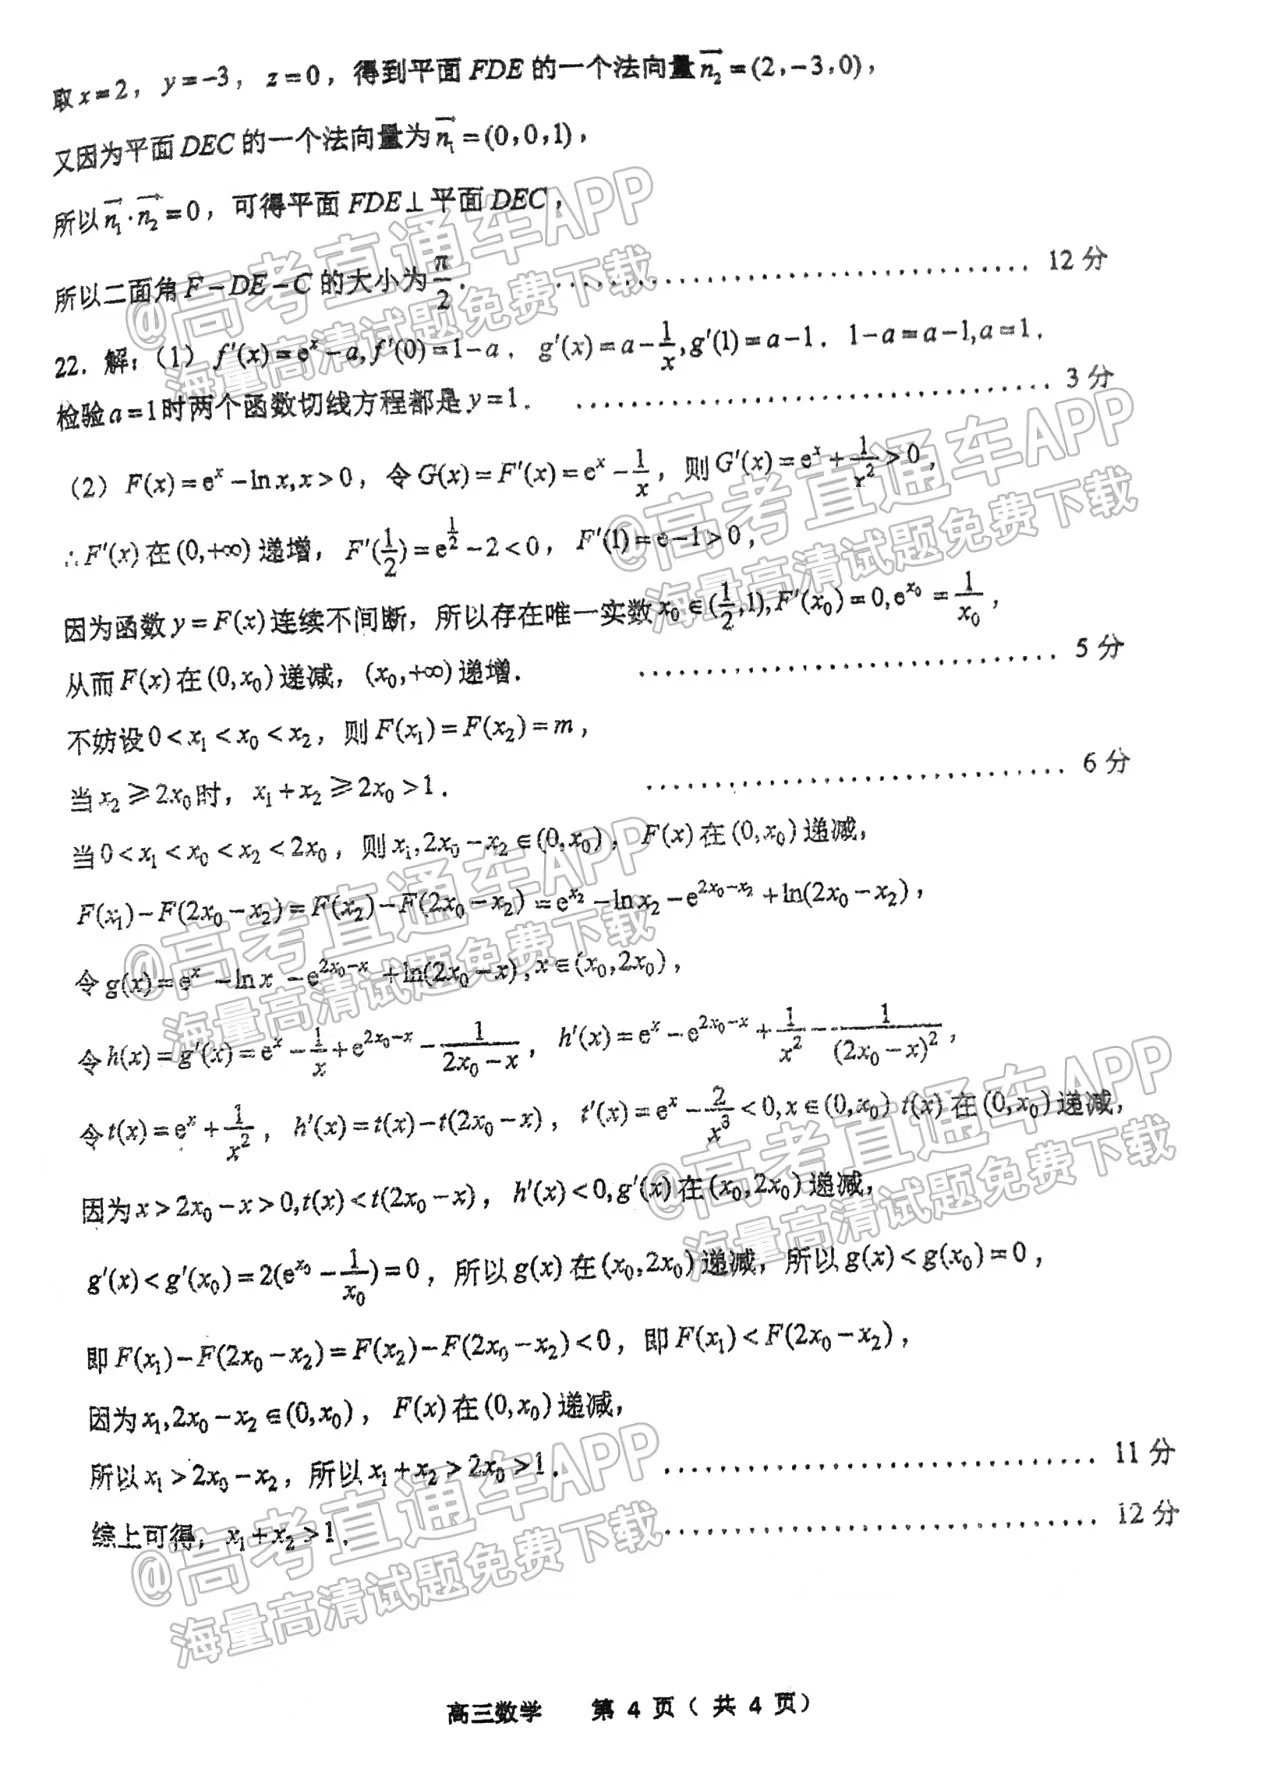 取x=2, y=-3, z=0, 得到平面FDE的一个法向量\vec{n_2}=(2,-3,0),
又因为平面DEC的一个法向量为\vec{n_1}=(0,0,1),
所以\vec{n_1}·\vec{n_2}=0, 可得平面FDE⊥平面DEC,
所以二面角F-DE-C的大小为\frac{π}{2}. ……………… 12分
22. 解: (1) f'(x)=e^x-a, f'(0)=1-a, g'(x)=a-\frac{1}{x}, g'(1)=a-1. 1-a=a-1, a=1.
检验a=1时两个函数切线方程都是y=1. ……………… 3分
(2) F(x)=e^x-lnx, x>0, 令G(x)=F'(x)=e^x-\frac{1}{x}, 则G'(x)=e^x+\frac{1}{x^2}>0,
∴F'(x)在(0,+∞)递增, F'(\frac{1}{2})=e^{\frac{1}{2}}-2<0, F'(1)=e-1>0,
因为函数y=F(x)连续不间断, 所以存在唯一实数x_0∈(\frac{1}{2},1), F'(x_0)=0, e^{x_0}=\frac{1}{x_0},
从而F(x)在(0,x_0)递减, (x_0,+∞)递增. ……………… 5分
不妨设0<x_1<x_0<x_2, 则F(x_1)=F(x_2)=m,
当x_2⩾2x_0时, x_1+x_2⩾2x_0>1. ……………… 6分
当0<x_1<x_0<x_2<2x_0, 则x_1, 2x_0-x_2∈(0,x_0), F(x)在(0,x_0)递减,
F(x_1)-F(2x_0-x_2)=F(x_2)-F(2x_0-x_2)=e^{x_2}-lnx_2-e^{2x_0-x_2}+ln(2x_0-x_2),
令g(x)=e^x-lnx-e^{2x_0-x}+ln(2x_0-x), x∈(x_0,2x_0),
令h(x)=g'(x)=e^x-\frac{1}{x}+e^{2x_0-x}-\frac{1}{2x_0-x}, h'(x)=e^x-e^{2x_0-x}+\frac{1}{x^2}-\frac{1}{(2x_0-x)^2},
令t(x)=e^x+\frac{1}{x^2}, h'(x)=t(x)-t(2x_0-x), t'(x)=e^x-\frac{2}{x^3}<0, x∈(0,x_0) t(x)在(0,x_0)递减,
因为x>2x_0-x>0, t(x)<t(2x_0-x), h'(x)<0, g'(x)在(x_0,2x_0)递减,
g'(x)<g'(x_0)=2(e^{x_0}-\frac{1}{x_0})=0, 所以g(x)在(x_0,2x_0)递减, 所以g(x)<g(x_0)=0,
即F(x_1)-F(2x_0-x_2)=F(x_2)-F(2x_0-x_2)<0, 即F(x_1)<F(2x_0-x_2),
因为x_1, 2x_0-x_2∈(0,x_0), F(x)在(0,x_0)递减,
所以x_1>2x_0-x_2, 所以x_1+x_2>2x_0>1. ……………… 11分
综上可得, x_1+x_2>1. ……………… 12分
高三数学 第 4 页 ( 共 4 页)
@高考直通车APP
海量高清试题免费下载
@高考直通车APP
海量高清试题免费下载
@高考直通车APP
海量高清试题免费下载
@高考直通车APP
海量高清试题免费下载
@高考直通车APP
海量高清试题免费下载